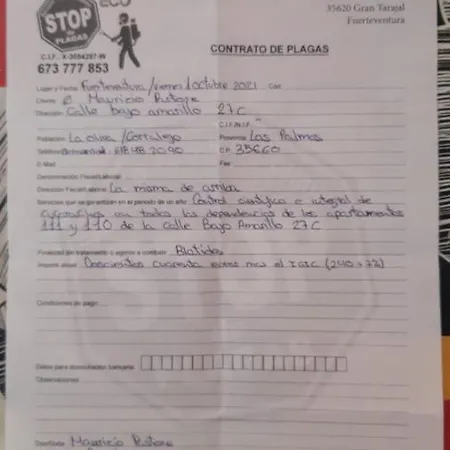 ECO
STOP
PLAGAS
C.I.F. X-3694297-W
673 777 853
35620 Gran Tarajal
Fuerteventura
CONTRATO DE PLAGAS
Lugar y Fecha: Fuerteventura/viernes 1/octubre 2021 Cod:
Cliente: Mauricio
Dirección: Calle bajo amarillo 27C
C.I.F./N.I.F.:
Población: La Oliva / Corralejo Provincia: Las Palmas
Teléfono C.P. 35660
E-Mail Fax
Denominación Fiscal/Laboral:
Dirección Fiscal/Laboral: La misma de arriba
Servicios que se garantizan en el periodo de un año: Control científico e integral de
cucarachas en todas las dependencias de los apartamentos
111 y 110 de la calle Bajo Amarillo 27C
Finalidad del tratamiento o agente a combatir: Blatidos
Importe anual: Doscientos cuarenta euros mas el IGIC (240 +
Condiciones de pago:
Datos para domiciliación bancaria:
Observaciones:
Mauricio